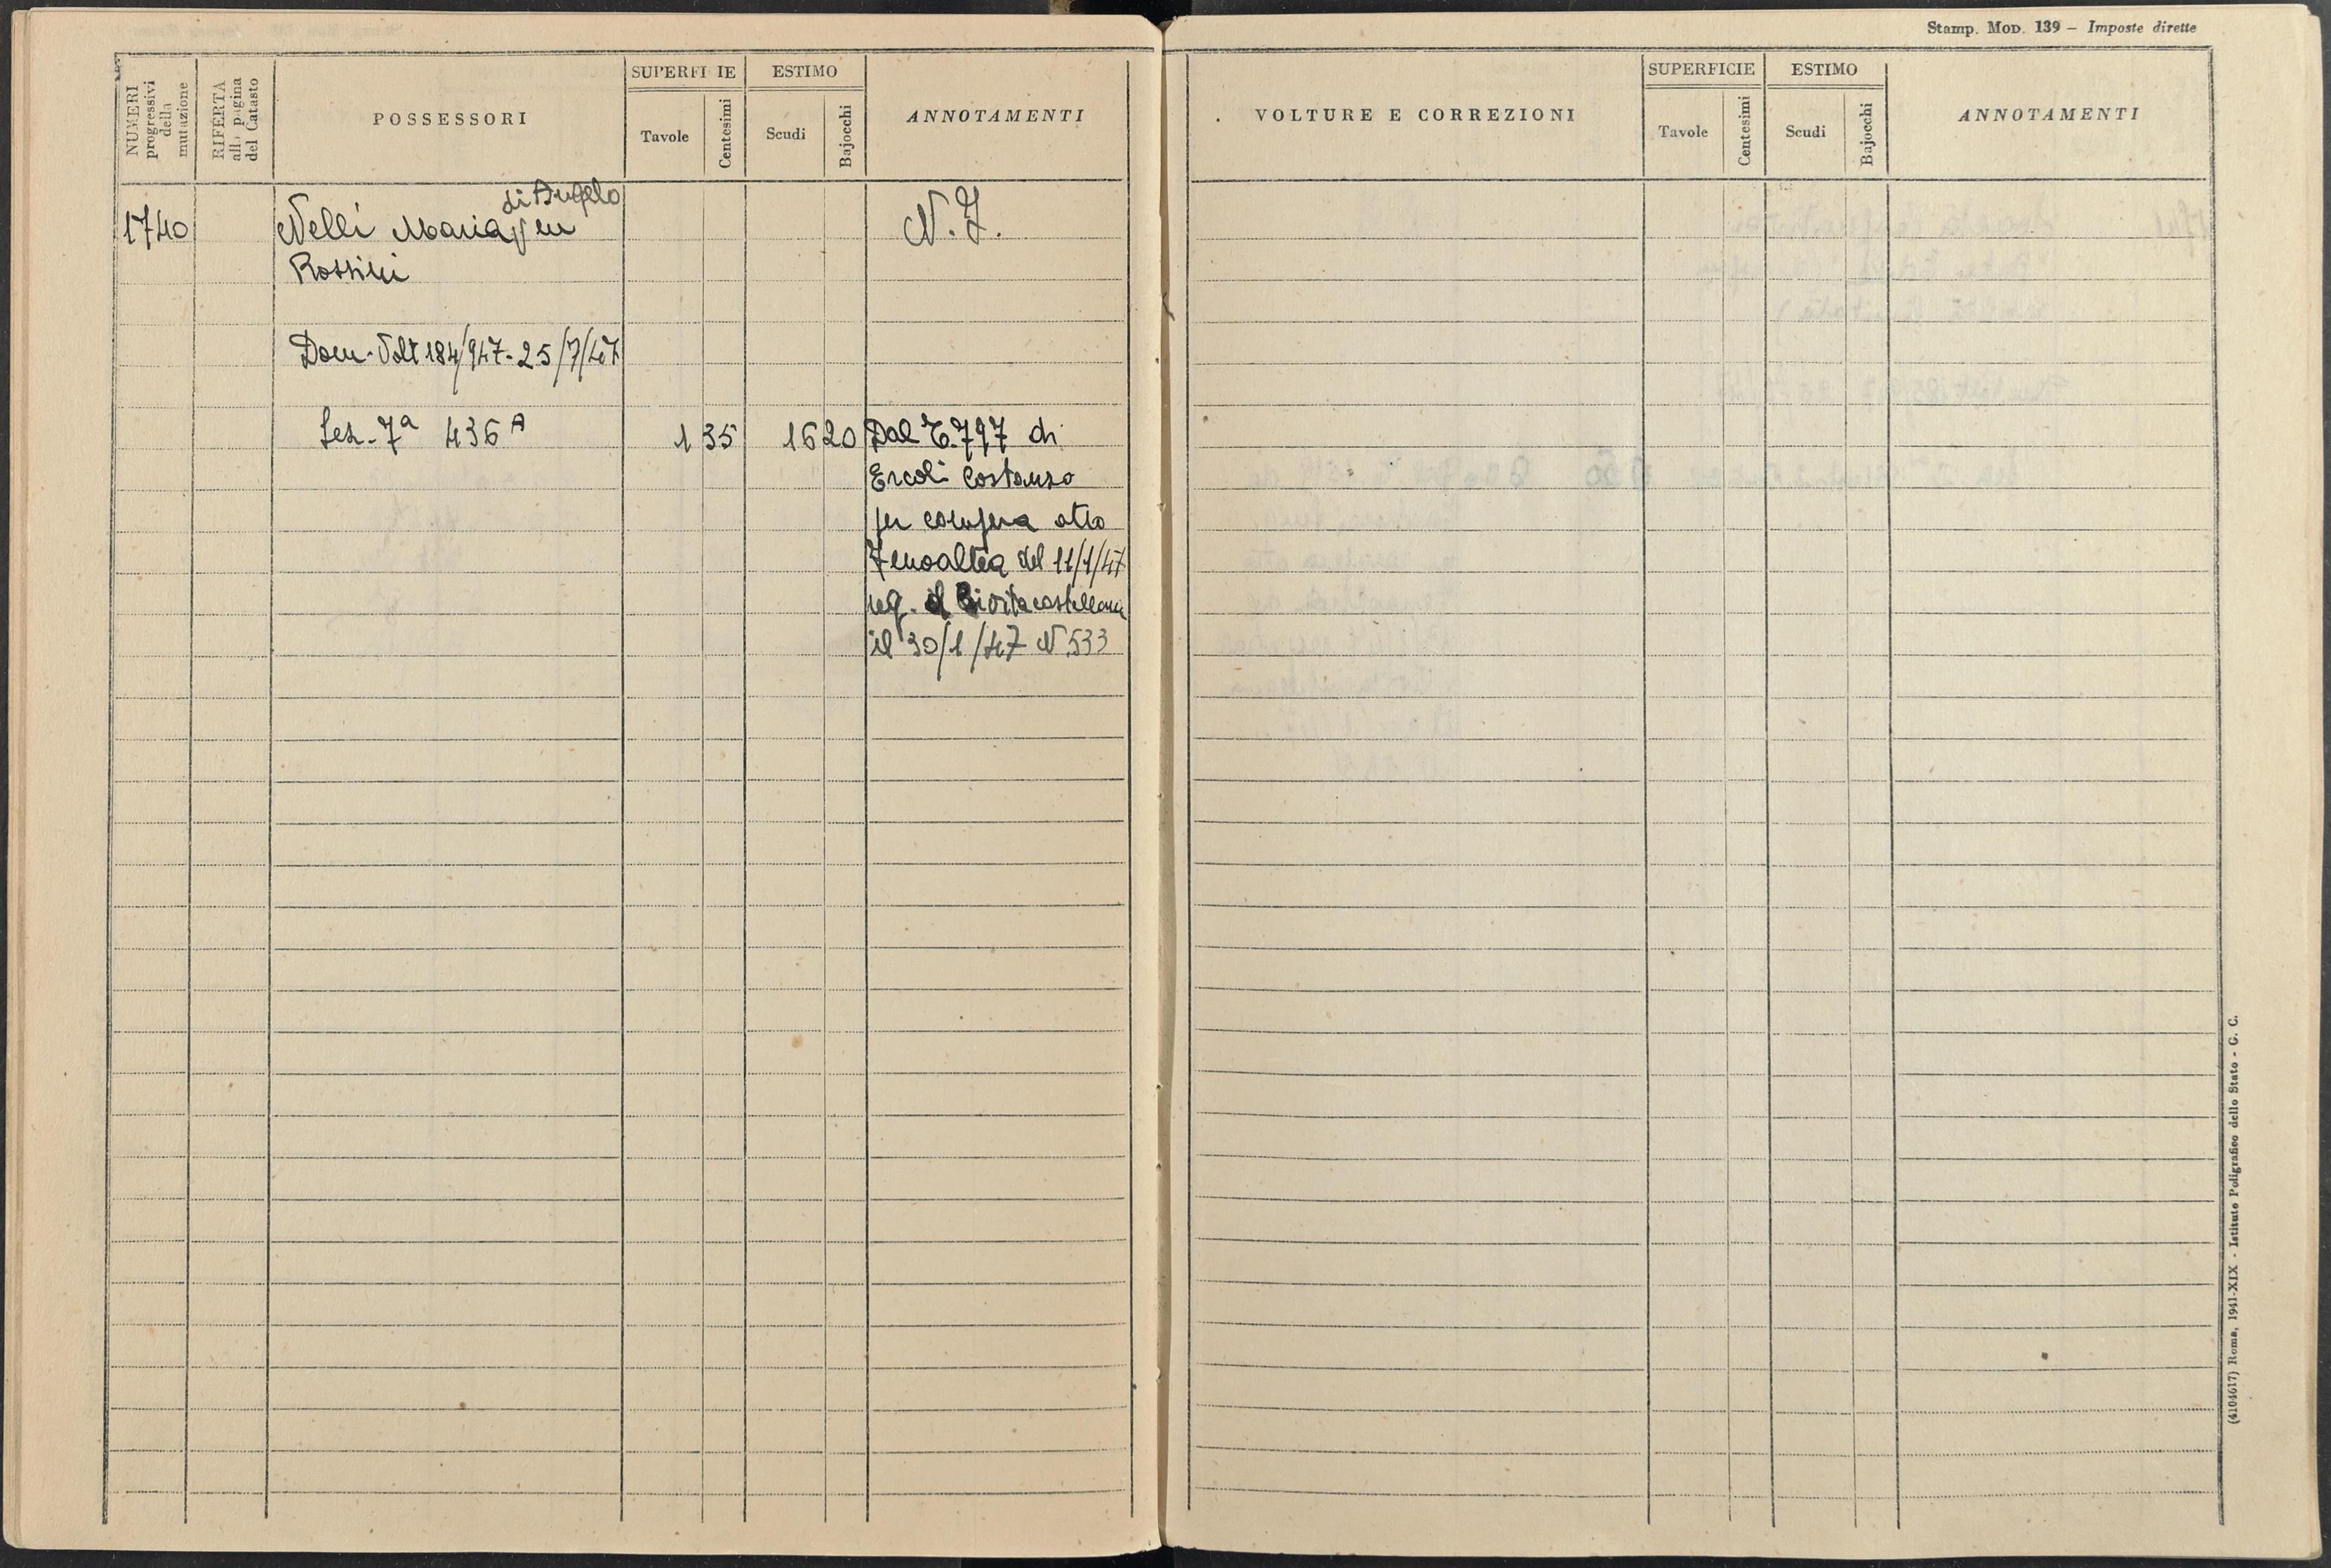 Stamp. Mod. 139 – Imposte dirette
NUMERI progressivi della mutazione
RIFERTA alla pagina del Catasto
POSSESSORI
SUPERFI IE
Tavole
Centesimi
ESTIMO
Scudi
Bajocchi
ANNOTAMENTI
VOLTURE E CORREZIONI
SUPERFICIE
Tavole
Centesimi
ESTIMO
Scudi
Bajocchi
ANNOTAMENTI
di Angelo
1740 Nelli Maria in N.I.
Rossini
Dom. Volt 184/947 - 25/7/47
Sez. 7ª 436 A 1 35 16 20 Dal T. 797 di
Ercoli Costanzo
per compera atto
Fenoaltea del 11/1/47
reg. Civitacastellana
il 30/1/47 N 533
(4104617) Roma, 1941-XIX - Istituto Poligrafico dello Stato - G. C.